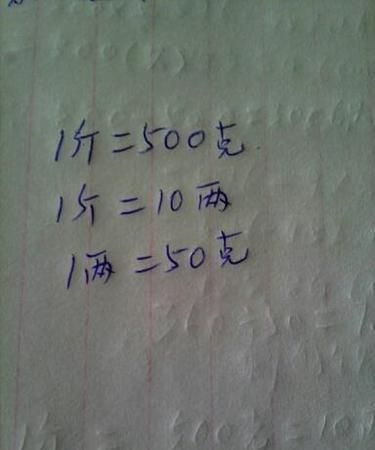 1斤=500克
1斤=10两
1两=50克